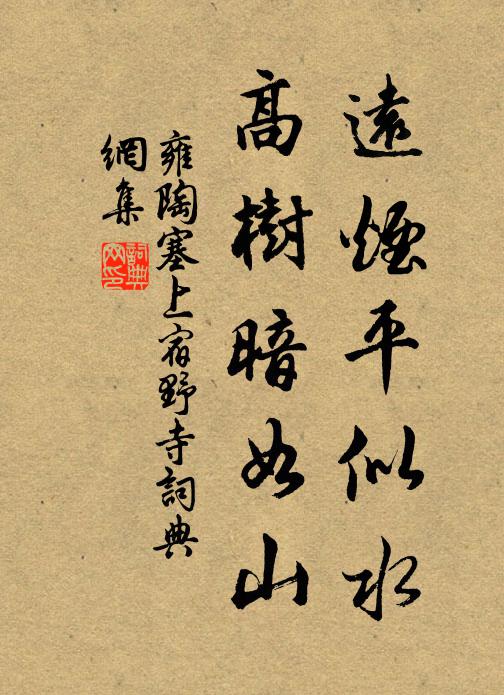 遠煙平似水
高樹暗如山
雍陶塞上宿野寺詞典
網集
詞典網印